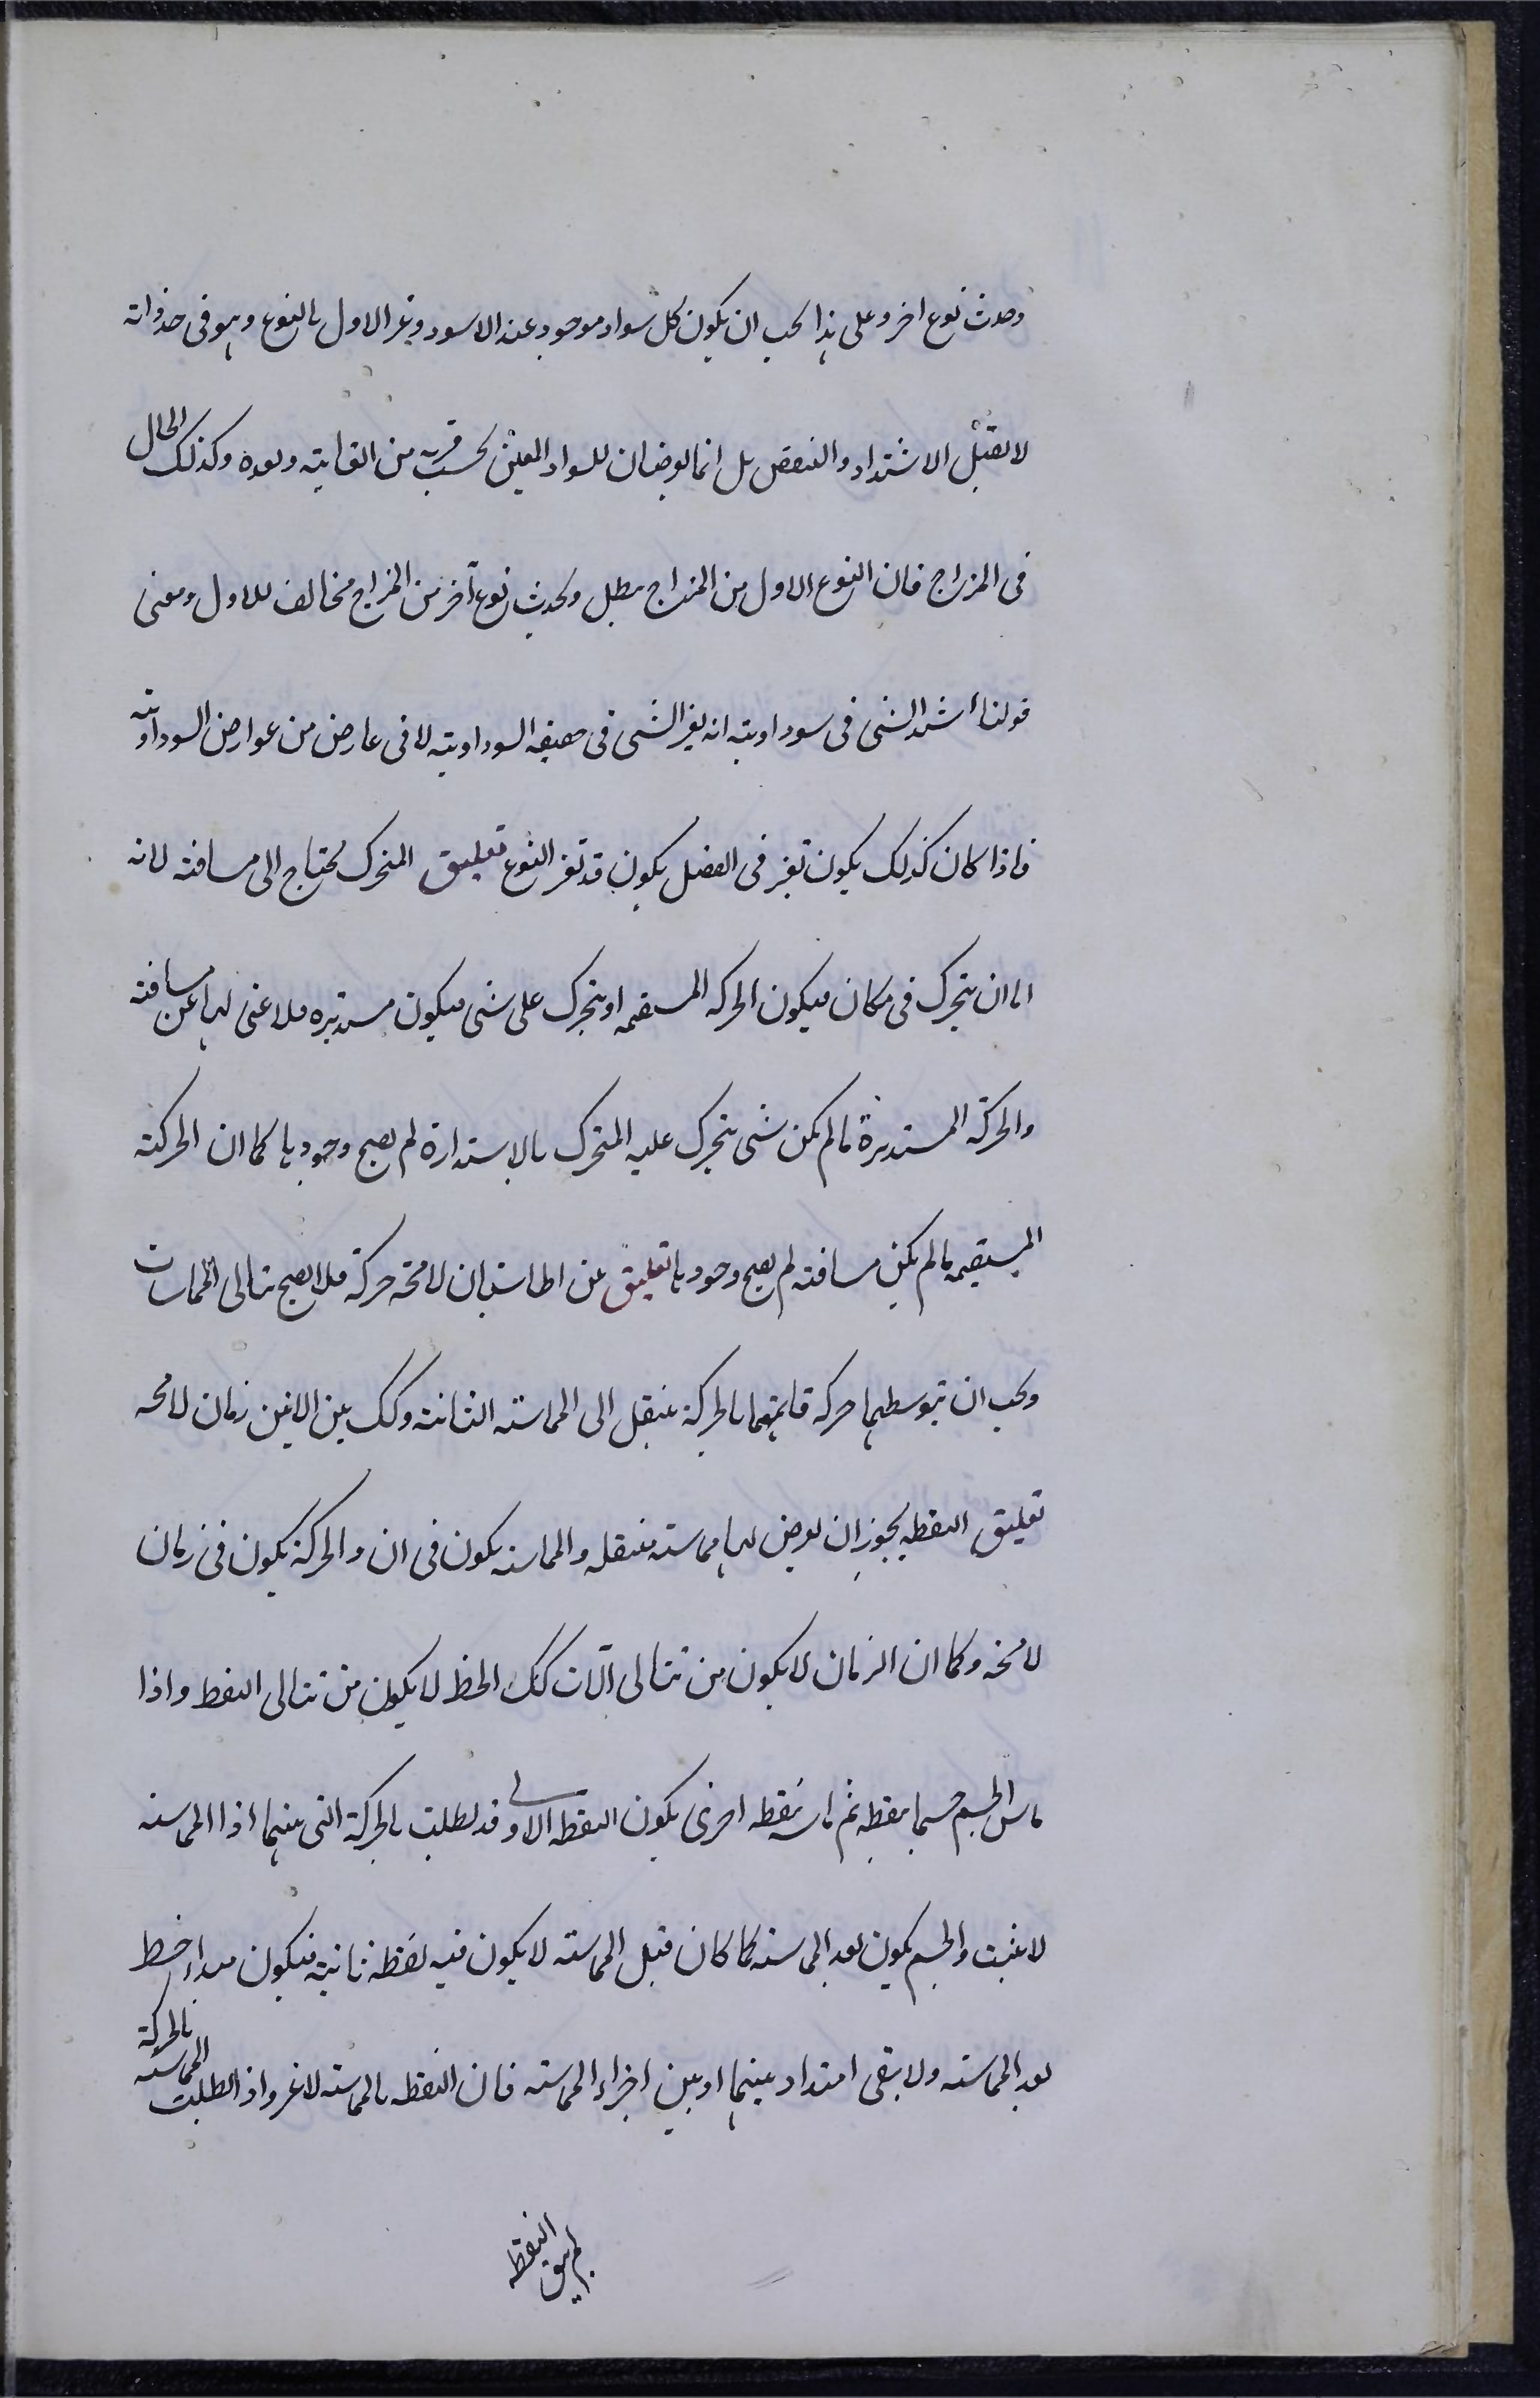 وحدث نوع اخر وعلى هذا يجب ان يكون كل سواد موجود عند الاسود وغير الاول بالنوع وهو فى حد ذاته
لا يقبل الاشتداد والتنقص بل انما يعرضان للسواد المعين بحسب قربه من الغاية وبعده وكذلك الحال
فى المزاج فان النوع الاول من المزاج يبطل ويحدث نوع آخر من المزاج مخالف للاول ومعنى
قولنا اشتد الشى فى سوداويته انه يغير الشى فى حقيقه السوداوية لا فى عارض من عوارض السوداوية
فاذا كان كذلك يكون تغير فى الفصل يكون قد تغير النوع تعليق المتحرك يحتاج الى مسافته لانه
اما ان يتحرك فى مكان فيكون الحركه المستقيمه او يتحرك على شى فيكون مستديره فلا غنى لها عن مسافته
والحركة المستديرة ما لم يكن شى يتحرك عليه المتحرك بالاستدارة لم يصح وجودها كما ان الحركة
المستقيمه ما لم يكن مسافته لم يصح وجودها تعليق بين اطاسبان لا محه حركة فلا يصح تتالى المماسات
ويجب ان يتوسطهما حركه فانهما بالحركة ينتقل الى المماسته الثانته وكك بين الانين زمان لا محه
تعليق النقطه يجوز ان يعرض لها مماسته منتقله والمماسه يكون فى ان والحركة يكون فى زمان
لا محه وكما ان الزمان لا يكون من تتالى آلآنات كك الخط لا يكون من تتالى النقط واذا
ماس الجسم جسما بنقطه ثم ماسه بنقطه اخرى يكون النقطه الاولى قد بطلت بالحركة التى بينهما اذا المماسته
لا يثبت والجسم يكون بعد المماسته كما كان قبل المماسته لا يكون فيه نقطة ثانية فيكون مبداء خط
بعد المماسته ولا يبقى امتداد بينهما او بين اجزاء المماسته فان النقطه بالمماسته لا غير واذا بطلت المماسته بالحركة
لم يبق النقطه